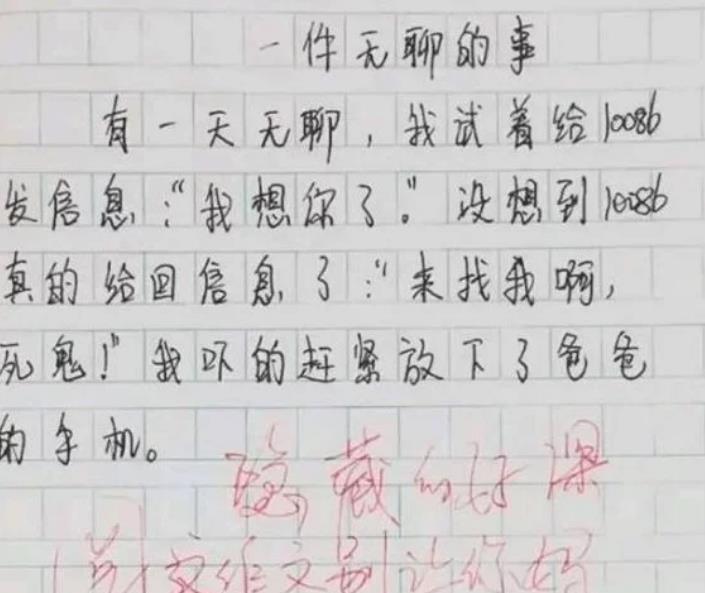 一件无聊的事
有一天无聊，我试着给10086
发信息：“我想你了。”没想到10086
真的给回信息了：“来找我啊，
死鬼！”我吓的赶紧放下了爸爸
的手机。
隐藏的好深
这篇作文别让你妈